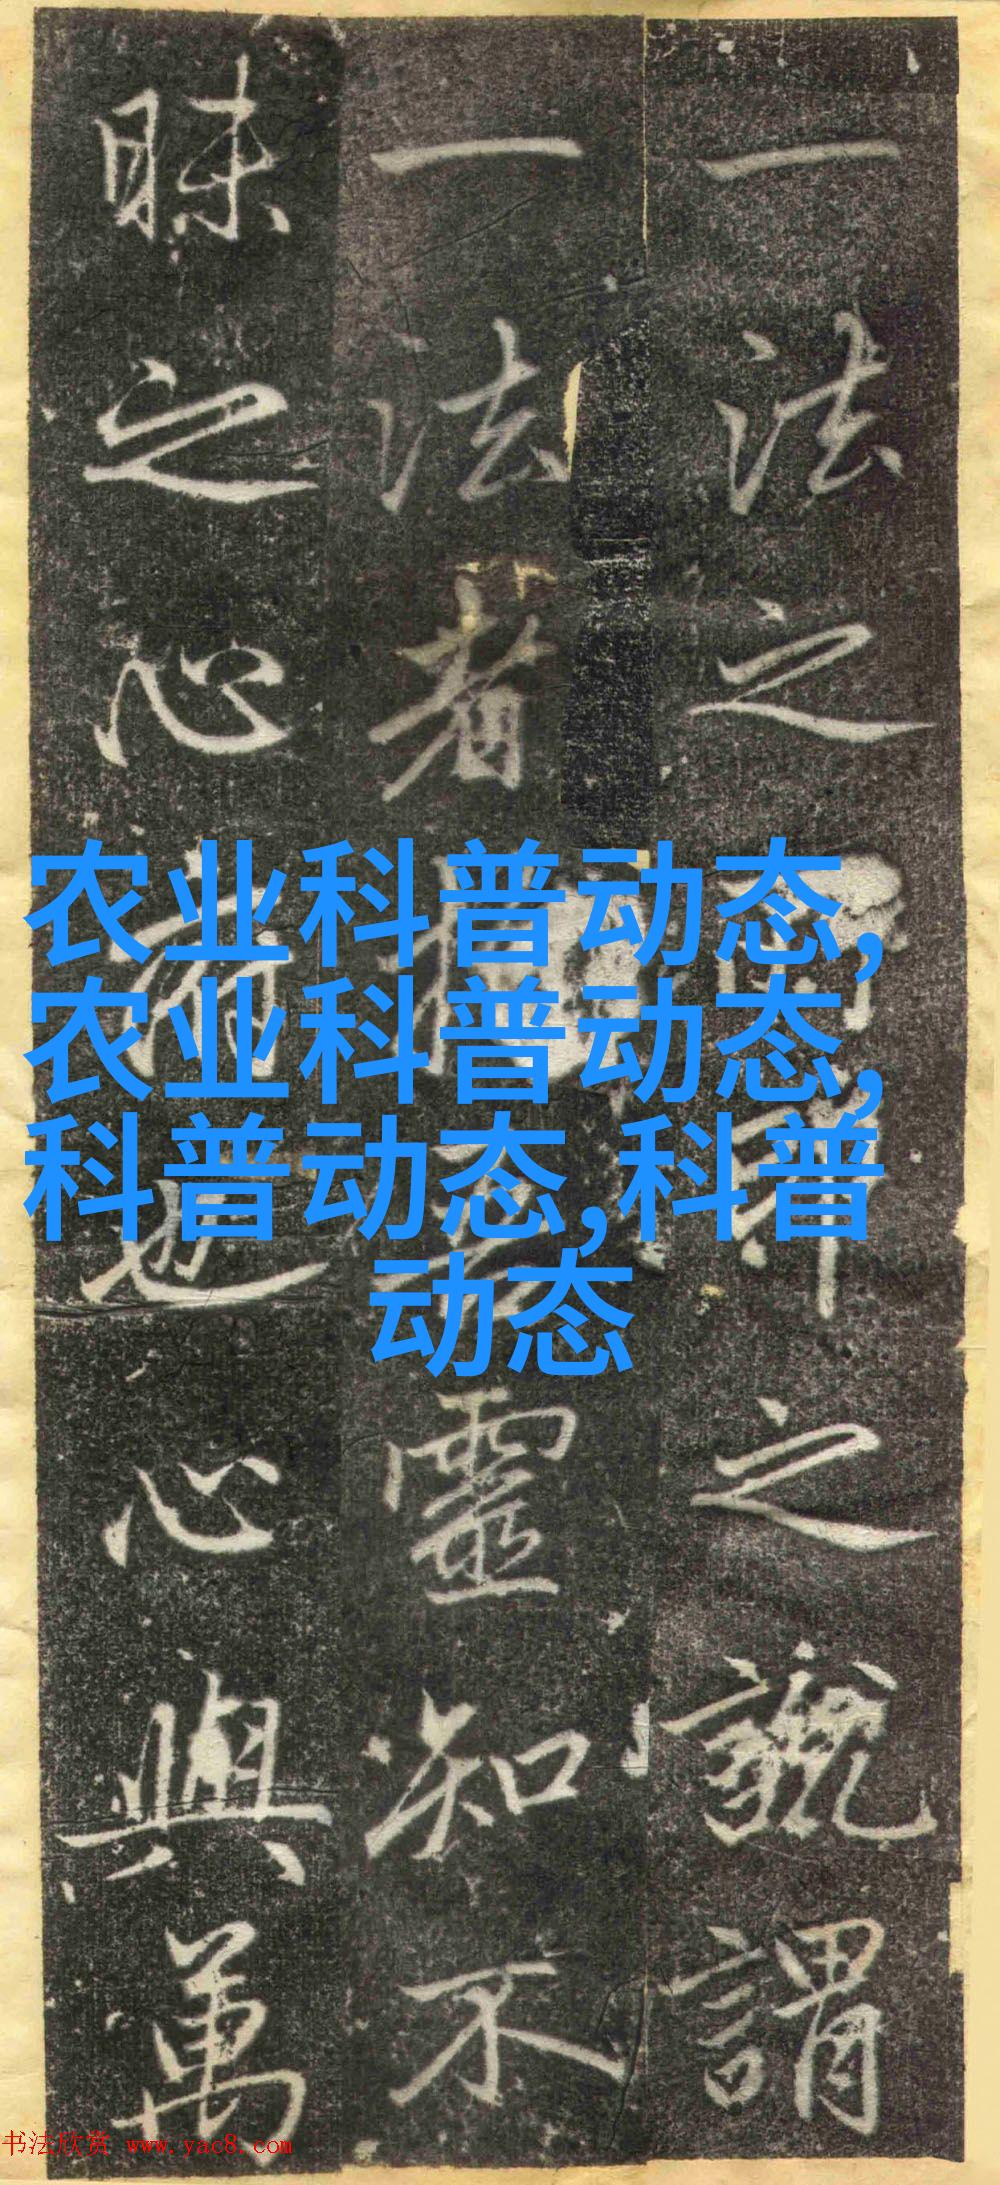 一法之
之說謂
一法者
靈知不
昧之心
也心與萬
农业科普动态,
农业科普动态,
科普动态,科普
动态
书法欣赏 www.yac8.com